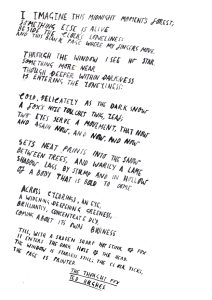 I IMAGINE THIS MIDNIGHT MOMENT'S FOREST;
SOMETHING ELSE IS ALIVE
BESIDE THE CLOCK'S LONELINESS
AND THIS BLANK PAGE WHERE MY FINGERS MOVE.
THROUGH THE WINDOW I SEE NO STAR:
SOMETHING MORE NEAR
THOUGH DEEPER WITHIN DARKNESS
IS ENTERING THE LONELINESS:
COLD, DELICATELY AS THE DARK SNOW
A FOX'S NOSE TOUCHES TWIG, LEAF;
TWO EYES SERVE A MOVEMENT, THAT NOW
AND AGAIN NOW, AND NOW, AND NOW
SETS NEAT PRINTS INTO THE SNOW
BETWEEN TREES, AND WARILY A LAME
SHADOW LAGS BY STUMP AND IN HOLLOW
OF A BODY THAT IS BOLD TO COME
ACROSS CLEARINGS, AN EYE,
A WIDENING DEEPENING GREENNESS,
BRILLIANTLY, CONCENTRATEDLY,
COMING ABOUT ITS OWN BUSINESS
TILL, WITH A SUDDEN SHARP HOT STINK OF FOX
IT ENTERS THE DARK HOLE OF THE HEAD.
THE WINDOW IS STARLESS STILL; THE CLOCK TICKS,
THE PAGE IS PRINTED.
THE THOUGHT FOX
TED HUGHES